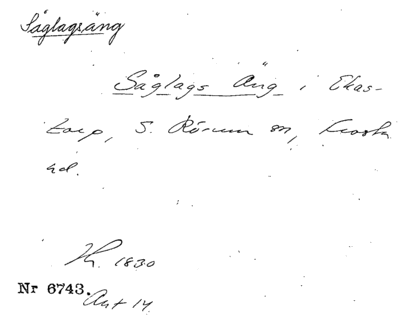 Såglagsäng
Såglags Äng i Ekas-
torp, S. Rörum sn, Frosta
hd.
H. 1830
Nr 6743.
Akt 14.